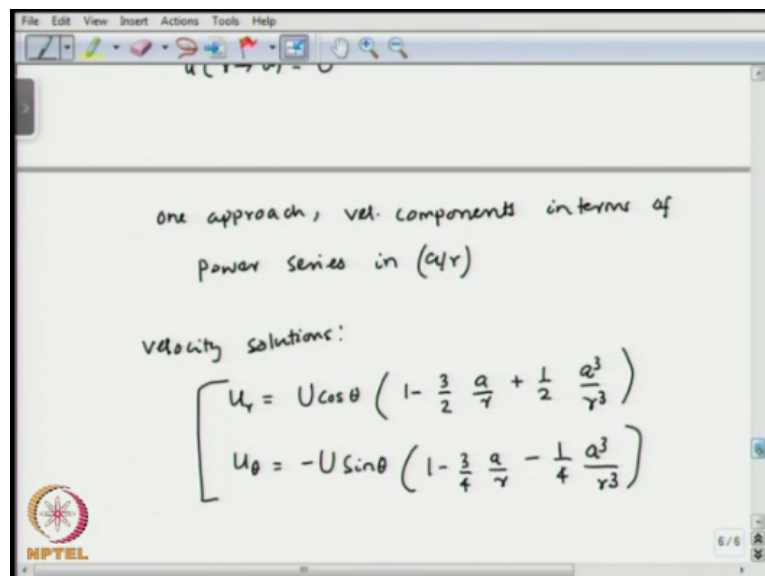 File Edit View Insert Actions Tools Help
one approach, vel. components in terms of
power series in (a/r)
velocity solutions:
u_r = U cos θ ( 1 - 3/2 a/r + 1/2 a^3/r^3 )
u_θ = -U sin θ ( 1 - 3/4 a/r - 1/4 a^3/r^3 )
NPTEL
6/6